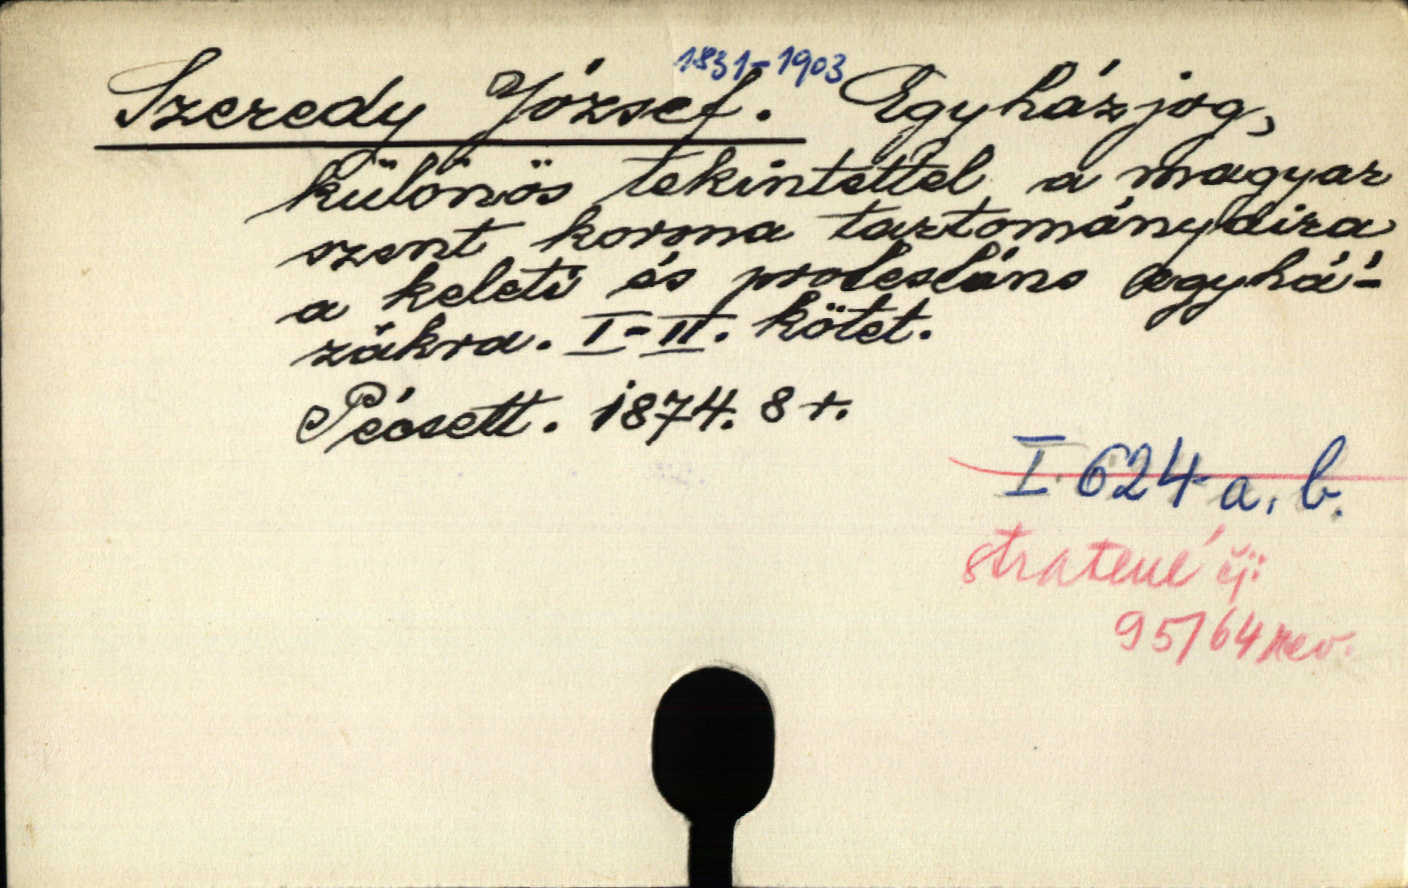 1831-1903
Szeredy József. Egyházjog,
különös tekintettel a magyar
szent korona tartománydira
a keleti és protestáns egyhá-
zákra. I-II. kötet.
Pécsett. 1874. 8 r.
I. 624 a, b.
stratené čj:
95/64 rev.